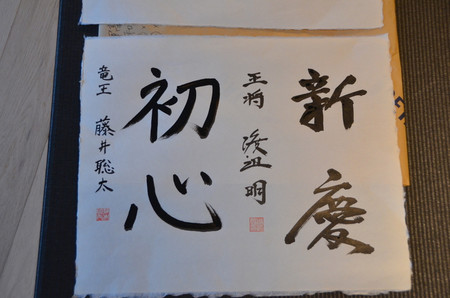 新慶
王将 渡辺明
初心
竜王 藤井聡太